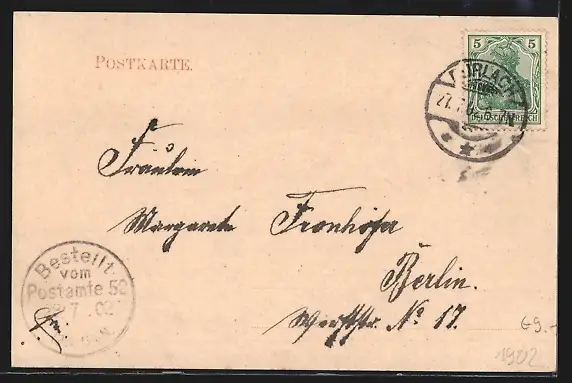 POSTKARTE.
5 5
DURLACH
27.7.02
DEUTSCHES REICH
Fräulein
Margarete Fronhöfer
Berlin.
Werftstr. No 17.
Bestellt
vom
Postamte 52
7.02
69.-
1902